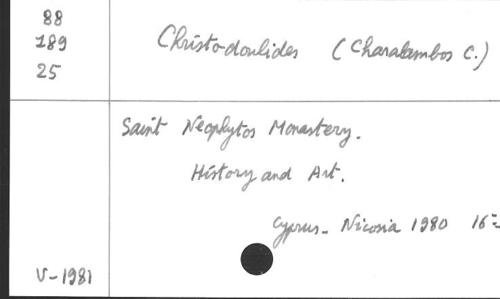 88
189
25
Christodoulides (Charalambos C.)
Saint Neophytos Monastery.
History and Art.
Cyprus - Nicosia 1980 16=
V-1981